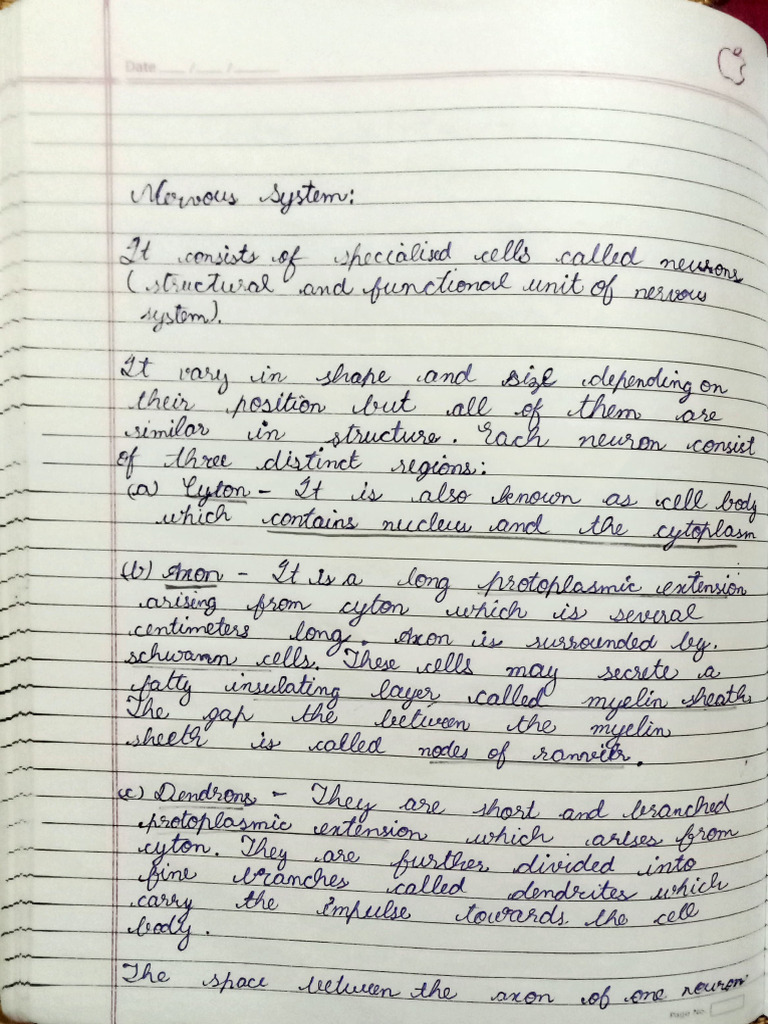 Date ___ /___ /___
Nervous System:
It consists of specialised cells called neurons
(structural and functional unit of nervous
system).
It vary in shape and size depending on
their position but all of them are
similar in structure. Each neuron consist
of three distinct regions:
(a) Cyton - It is also known as cell body
which contains nucleus and the cytoplasm
(b) Axon - It is a long protoplasmic extension
arising from cyton which is several
centimeters long. Axon is surrounded by.
schwann cells. These cells may secrete a
fatty insulating layer called myelin sheath.
The gap the between the myelin
sheeth is called nodes of ranvier.
(c) Dendrons - They are short and branched
protoplasmic extension which arises from
cyton. They are further divided into
fine branches called dendrites which
carry the impulse towards the cell
body.
The space between the axon of one neuron
Page No.